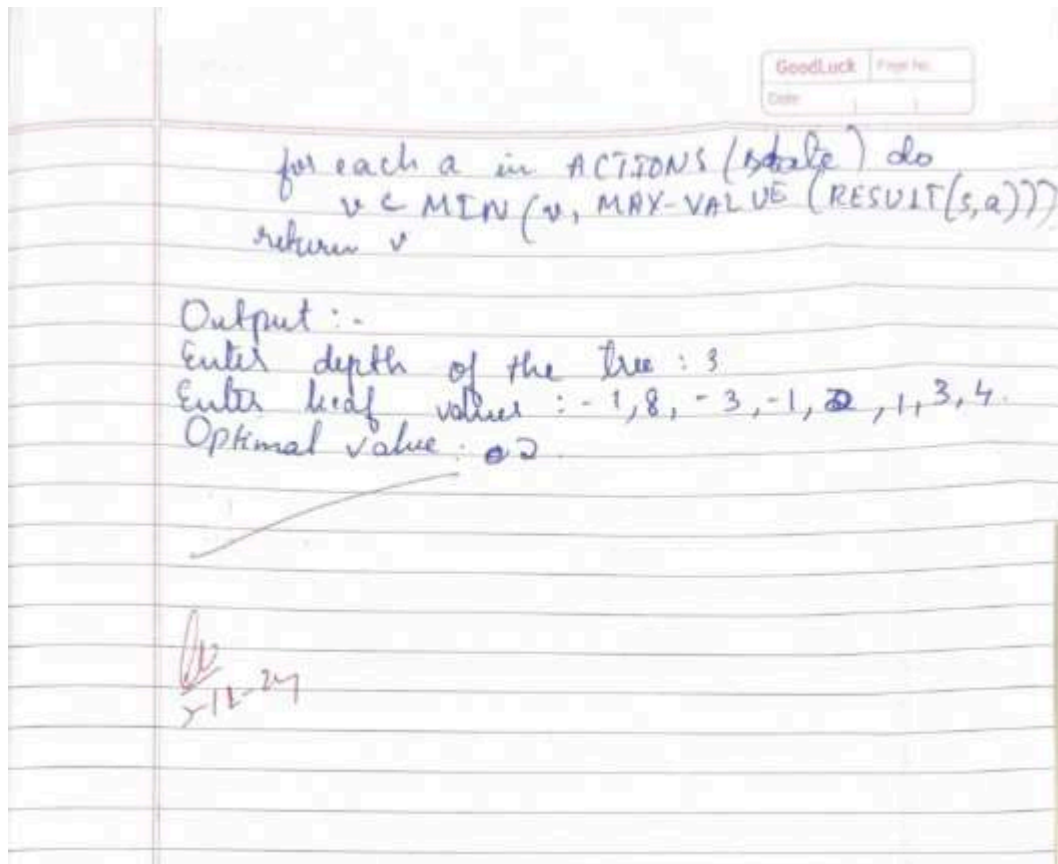 GoodLuck
Page No.
Date
for each a in ACTIONS (state) do
v ← MIN (v, MAX-VALUE (RESULT(s,a)))
return v
Output :-
Enter depth of the tree : 3
Enter leaf values : -1, 8, -3, -1, 2, 1, 3, 4.
Optimal value : 2.